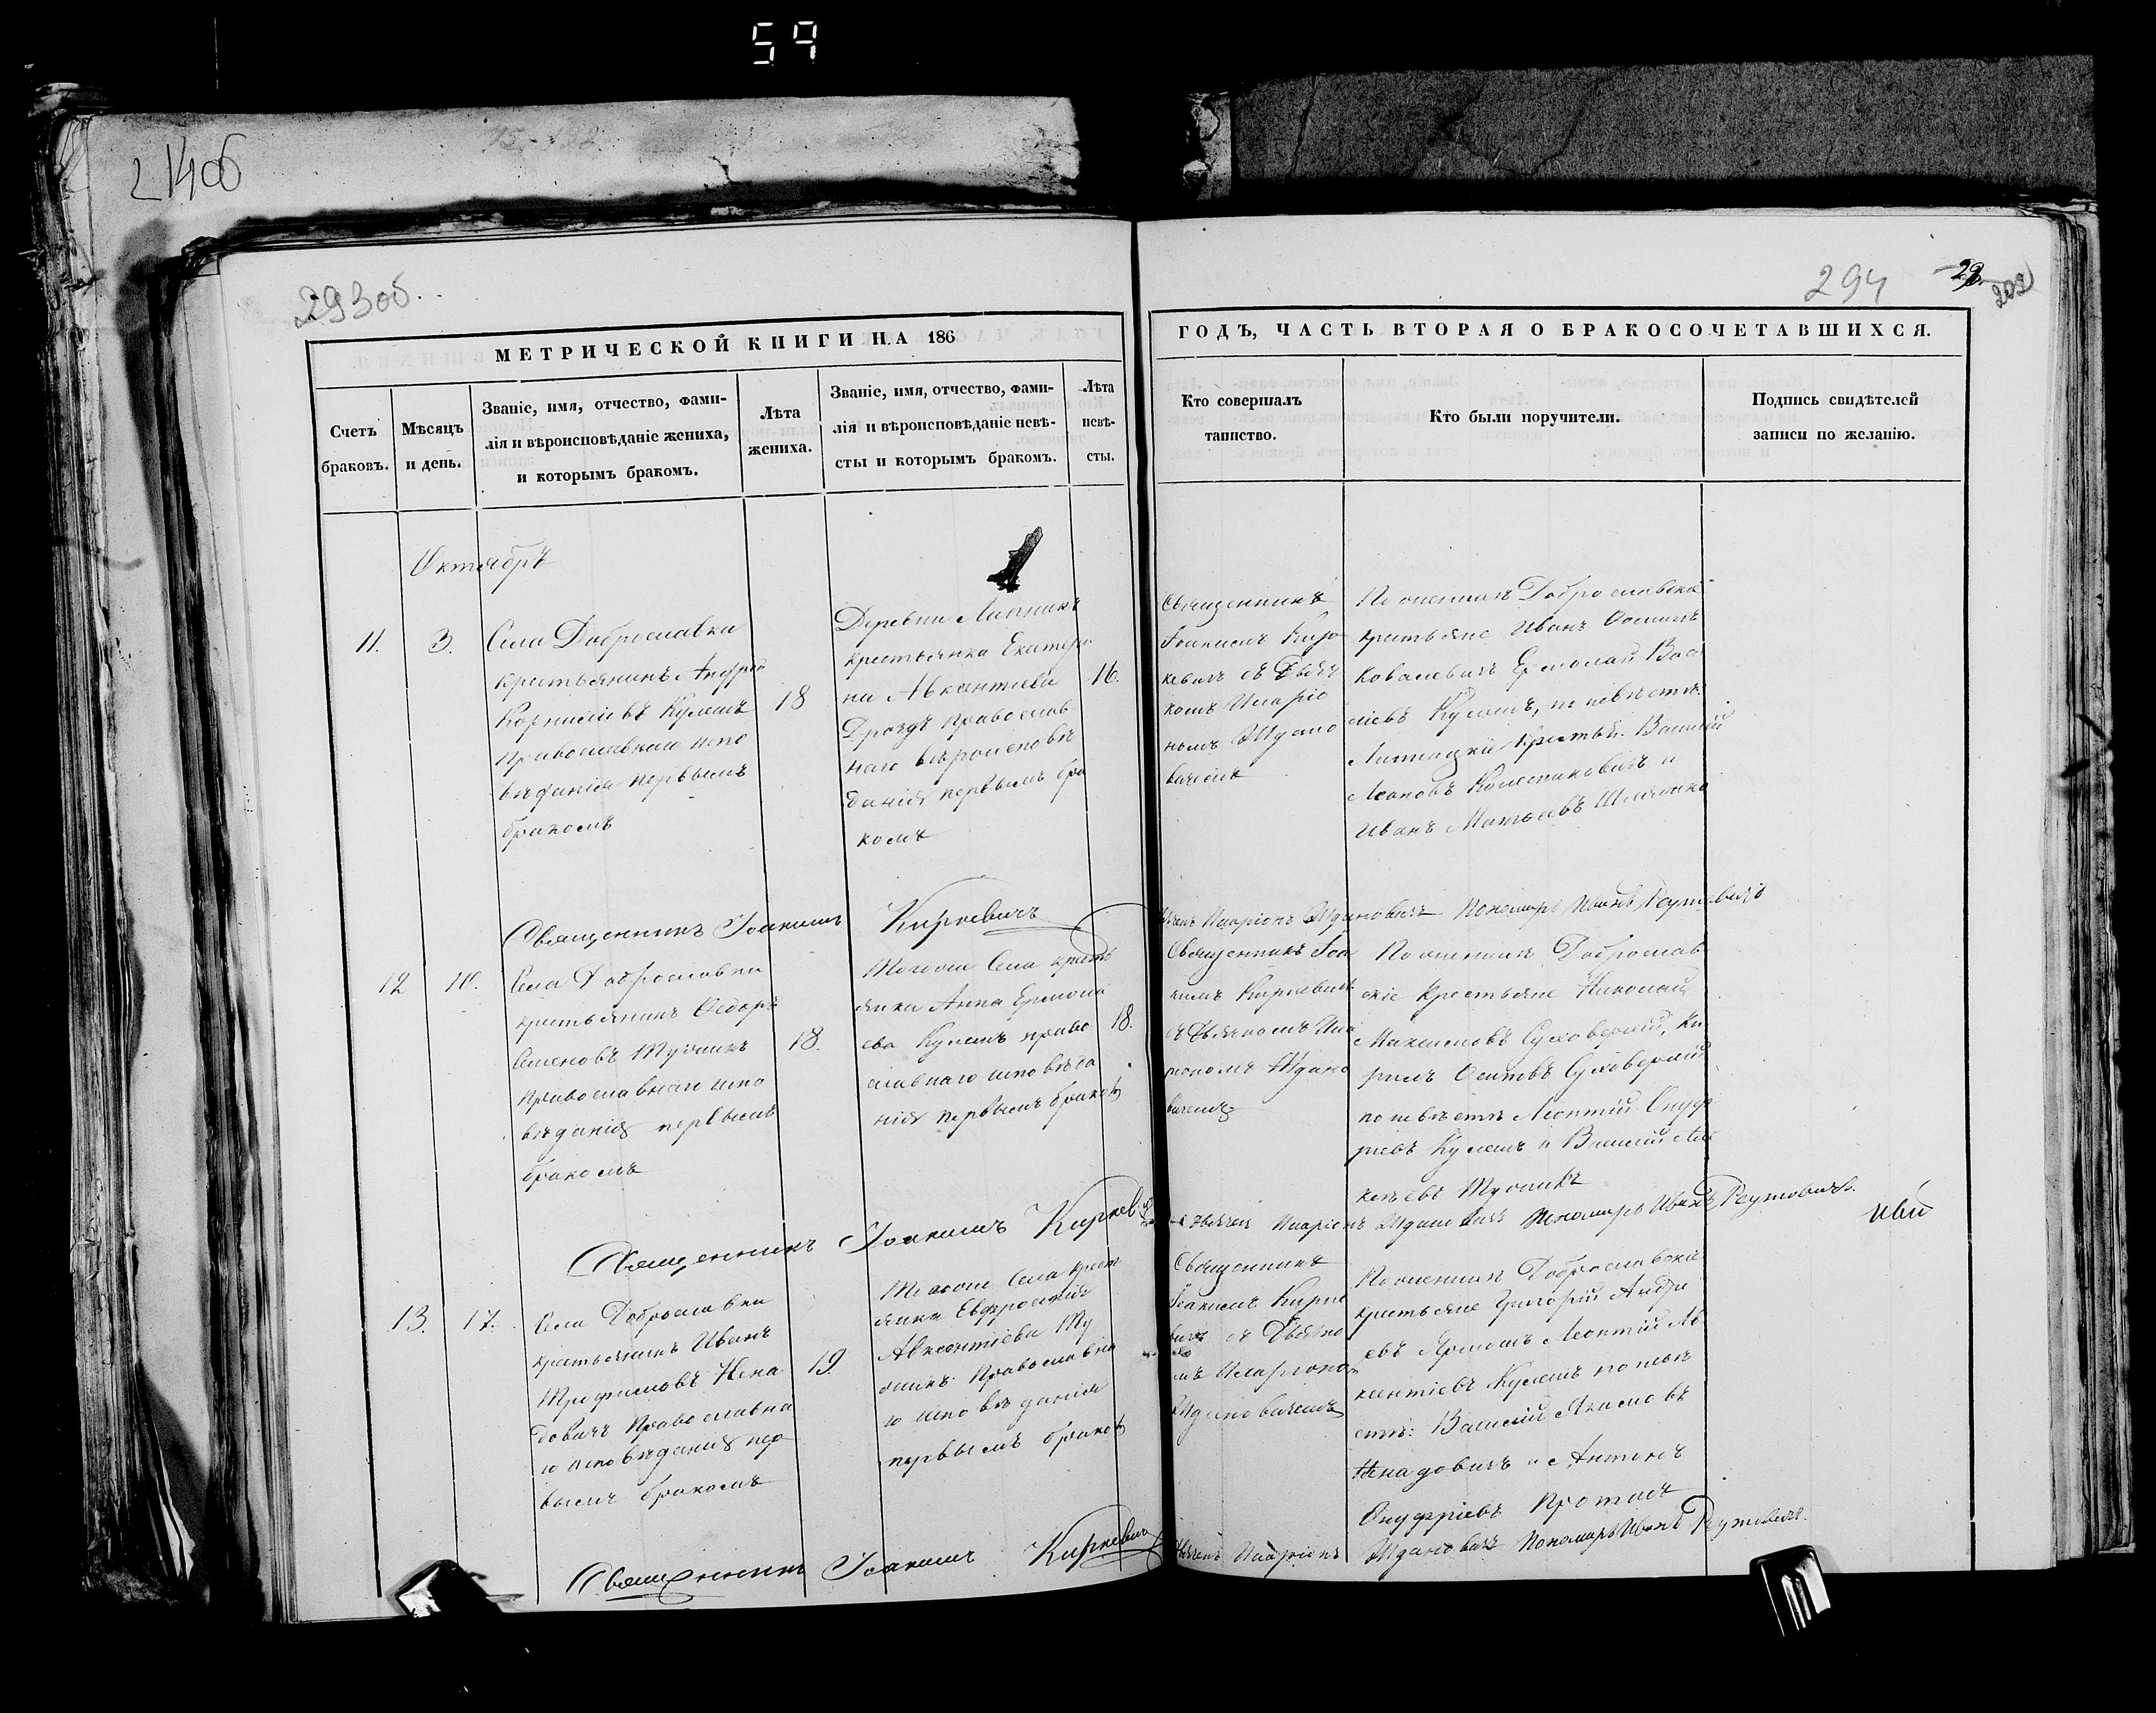 59
214об
293об.
294
29.
202
МЕТРИЧЕСКОЙ КНИГИ НА 186
ГОДЪ, ЧАСТЬ ВТОРАЯ О БРАКОСОЧЕТАВШИХСЯ.
Счетъ
браковъ.
Мѣсяцъ
и день.
Званіе, имя, отчество, фами-
лія и вѣроисповѣданіе жениха,
и которымъ бракомъ.
Лѣта
жениха.
Званіе, имя, отчество, фами-
лія и вѣроисповѣданіе невѣ-
сты и которымъ бракомъ.
Лѣта
невѣ-
сты.
Кто совершалъ
таинство.
Кто были поручители.
Подпись свидѣтелей
записи по желанію.
Октябрь
11.
3.
Села Доброславки
крестьянинъ Андрей
Корниліевъ Кулешъ
православнаго испо
вѣданія первымъ
бракомъ
18
Деревни
крестьянка Екатери
на Авксентіева
Дроздъ православ
наго вѣроисповѣ
данія первымъ бра
комъ
16.
Священникъ
Іоакимъ Кир
кевичъ съ Дьяч
комъ Иларіо
номъ Ждано
вичемъ
По женихѣ Доброславскіе
крестьяне Иванъ
Ковалевичъ Ермолай Васи
ліевъ Кулешъ, по невѣстѣ:
крестья. Василій
и
Иванъ Матѳеевъ
Священникъ Іоакимъ Киркевичъ
Иларіонъ Ждановичъ Пономарь Иванъ Реутовичъ
12
10.
Села Доброславки
крестьянинъ Ѳедоръ
Семеновъ Тучинъ
православнаго испо
вѣданія первымъ
бракомъ
18.
Тогоже Села кресть
янка Анна Ермола
ева Кулешъ право
славнаго исповѣда
нія первымъ бракомъ
18.
Священникъ Іоа
кимъ Киркевичъ
съ Дьячкомъ Ила
ріономъ Ждано
вичемъ
По женихѣ Доброслав
скіе крестьяне Николай
Максимовъ Суховерхій, Ки
рилъ Осиповъ Суховерхій
по невѣстѣ Леонтій Онуф
ріевъ Кулешъ и Василій Але
ксѣевъ
Священникъ Іоакимъ Киркевичъ
Дьячекъ Иларіонъ Ждановичъ Пономарь Иванъ Реутовичъ.
13.
17.
Села Доброславки
крестьянинъ Иванъ
Трофимовъ Нена
довичъ Православна
го исповѣданія пер
вымъ бракомъ
19.
Тогоже Села крест
янка Евфросинія
Авксентіева Ту
Православна
го исповѣданія
первымъ бракомъ
Священникъ
Іоакимъ Кирке
вичъ съ Дьячко
мъ Иларіономъ
Ждановичемъ
По женихѣ Доброславскіе
крестьяне Григорій Андре
евъ Леонтій Ав
ксентіевъ Кулешъ по невѣ
стѣ: Василій Якимовъ
Ненадовичъ и Антонъ
Онуфріевъ
Священникъ Іоакимъ Киркевичъ
Дьячекъ Иларіонъ Ждановичъ Пономарь Иванъ Реутовичъ.